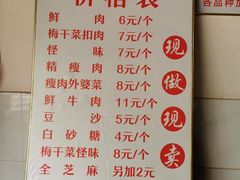 价格表
鲜肉 6元/个
梅干菜扣肉 7元/个
怪味 7元/个
精瘦肉 8元/个
瘦肉外婆菜 8元/个
鲜牛肉 11元/个
豆沙 5元/个
白砂糖 4元/个
梅干菜怪味 8元/个
全芝麻 另加2元
现做现卖
各品种加